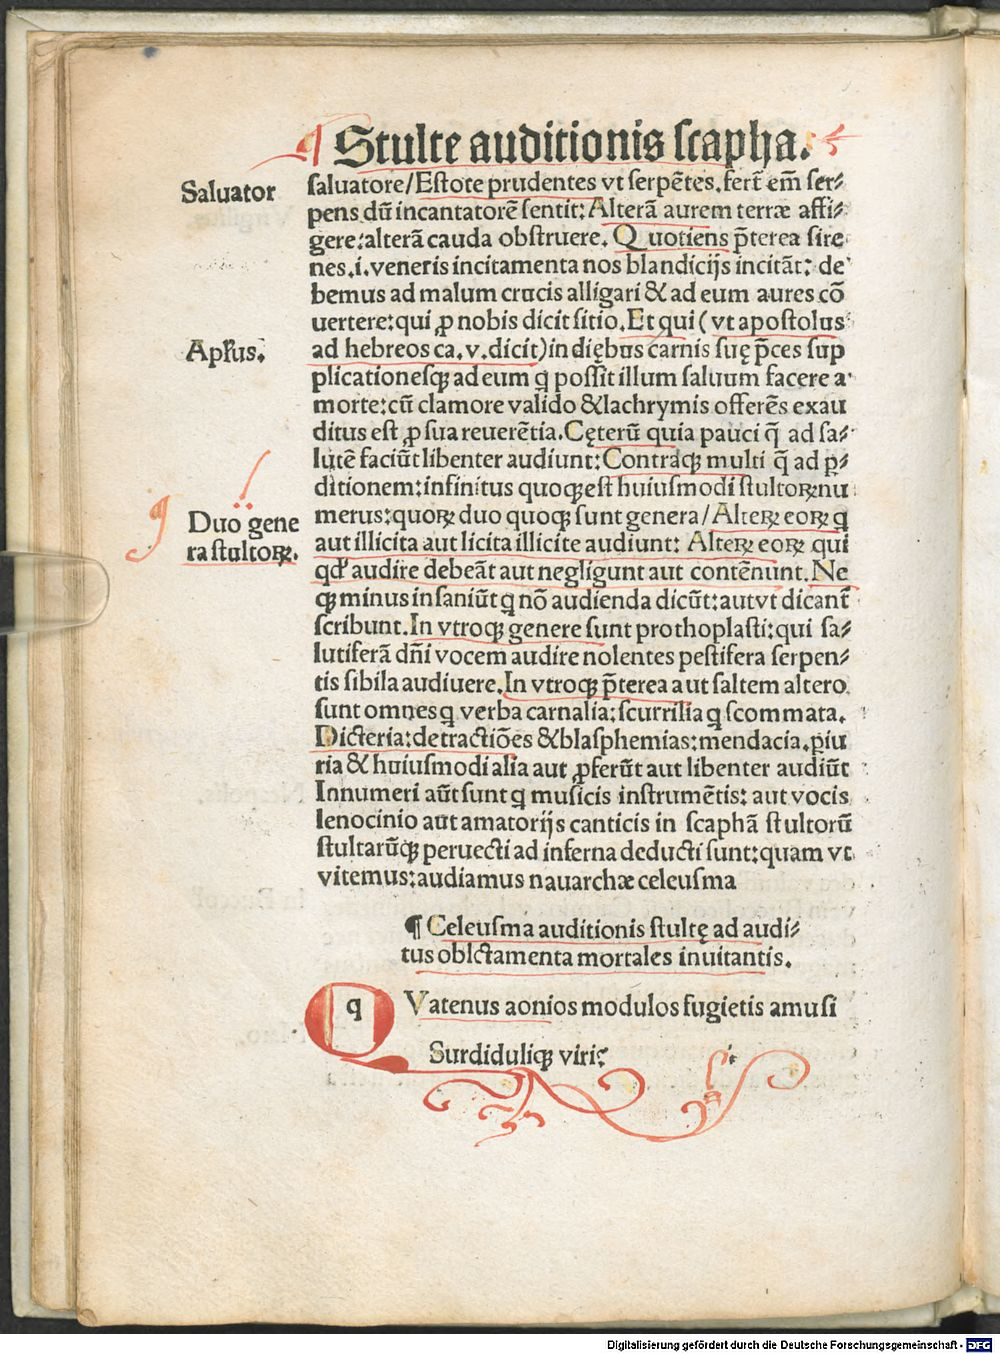 ¶ Stulte auditionis scapha.
Saluator
saluatore/Estote prudentes vt serpētes. fert̄ em̄ ser⸗
pens dū incantatorē sentit: Alterā aurem terræ affi⸗
gere: alterā cauda obstruere. Quotiens p̄terea sire
nes .i. veneris incitamenta nos blandicijs incitāt: de
bemus ad malum crucis alligari & ad eum aures cō
uertere: qui ꝓ nobis dicit sitio. Et qui (vt apostolus
Aplus.
ad hebreos ca. v. dicit) in diębus carnis suę p̄ces sup
plicationesqꝫ ad eum q̇ possit illum saluum facere a
morte: cū clamore valido & lachrymis offerēs exau
ditus est ꝓ sua reuerētia. Cęterū quia pauci q̄ ad sa⸗
lutē faciūt libenter audiunt: Contraqꝫ multi q̄ ad ꝑ⸗
ditionem: infinitus quoqꝫ est huiusmodi stultoꝝ nu
Duo gene
ra stultoꝝ.
merus: quoꝝ duo quoqꝫ sunt genera/Alteꝝ eoꝝ q̇
aut illicita aut licita illicite audiunt: Alteꝝ eoꝝ qui
qđ audire debeāt aut negligunt aut contēnunt. Ne
qꝫ minus insaniūt q̇ nō audienda dicūt: aut vt dicant̄
scribunt. In vtroqꝫ genere sunt prothoplasti: qui sa⸗
lutiferā dn̄i vocem audire nolentes pestifera serpen⸗
tis sibila audiuere. In vtroqꝫ p̄terea aut saltem altero
sunt omnes q̇ verba carnalia: scurrilia q̇ scommata.
Dicteria: detractiōes & blasphemias: mendacia. ꝑiu
ria & huiusmodi alia aut ꝓferūt aut libenter audiūt
Innumeri aūt sunt q̇ musicis instrumētis: aut vocis
lenocinio aut amatorijs canticis in scaphā stultorū
stultarūqꝫ peruecti ad inferna deducti sunt: quam vt
vitemus: audiamus nauarchæ celeusma
¶ Celeusma auditionis stultę ad audi⸗
tus oblctamenta mortales inuitantis.
q Vatenus aonios modulos fugietis amusi
Surdiduliqꝫ viri?
Digitalisierung gefördert durch die Deutsche Forschungsgemeinschaft - DFG